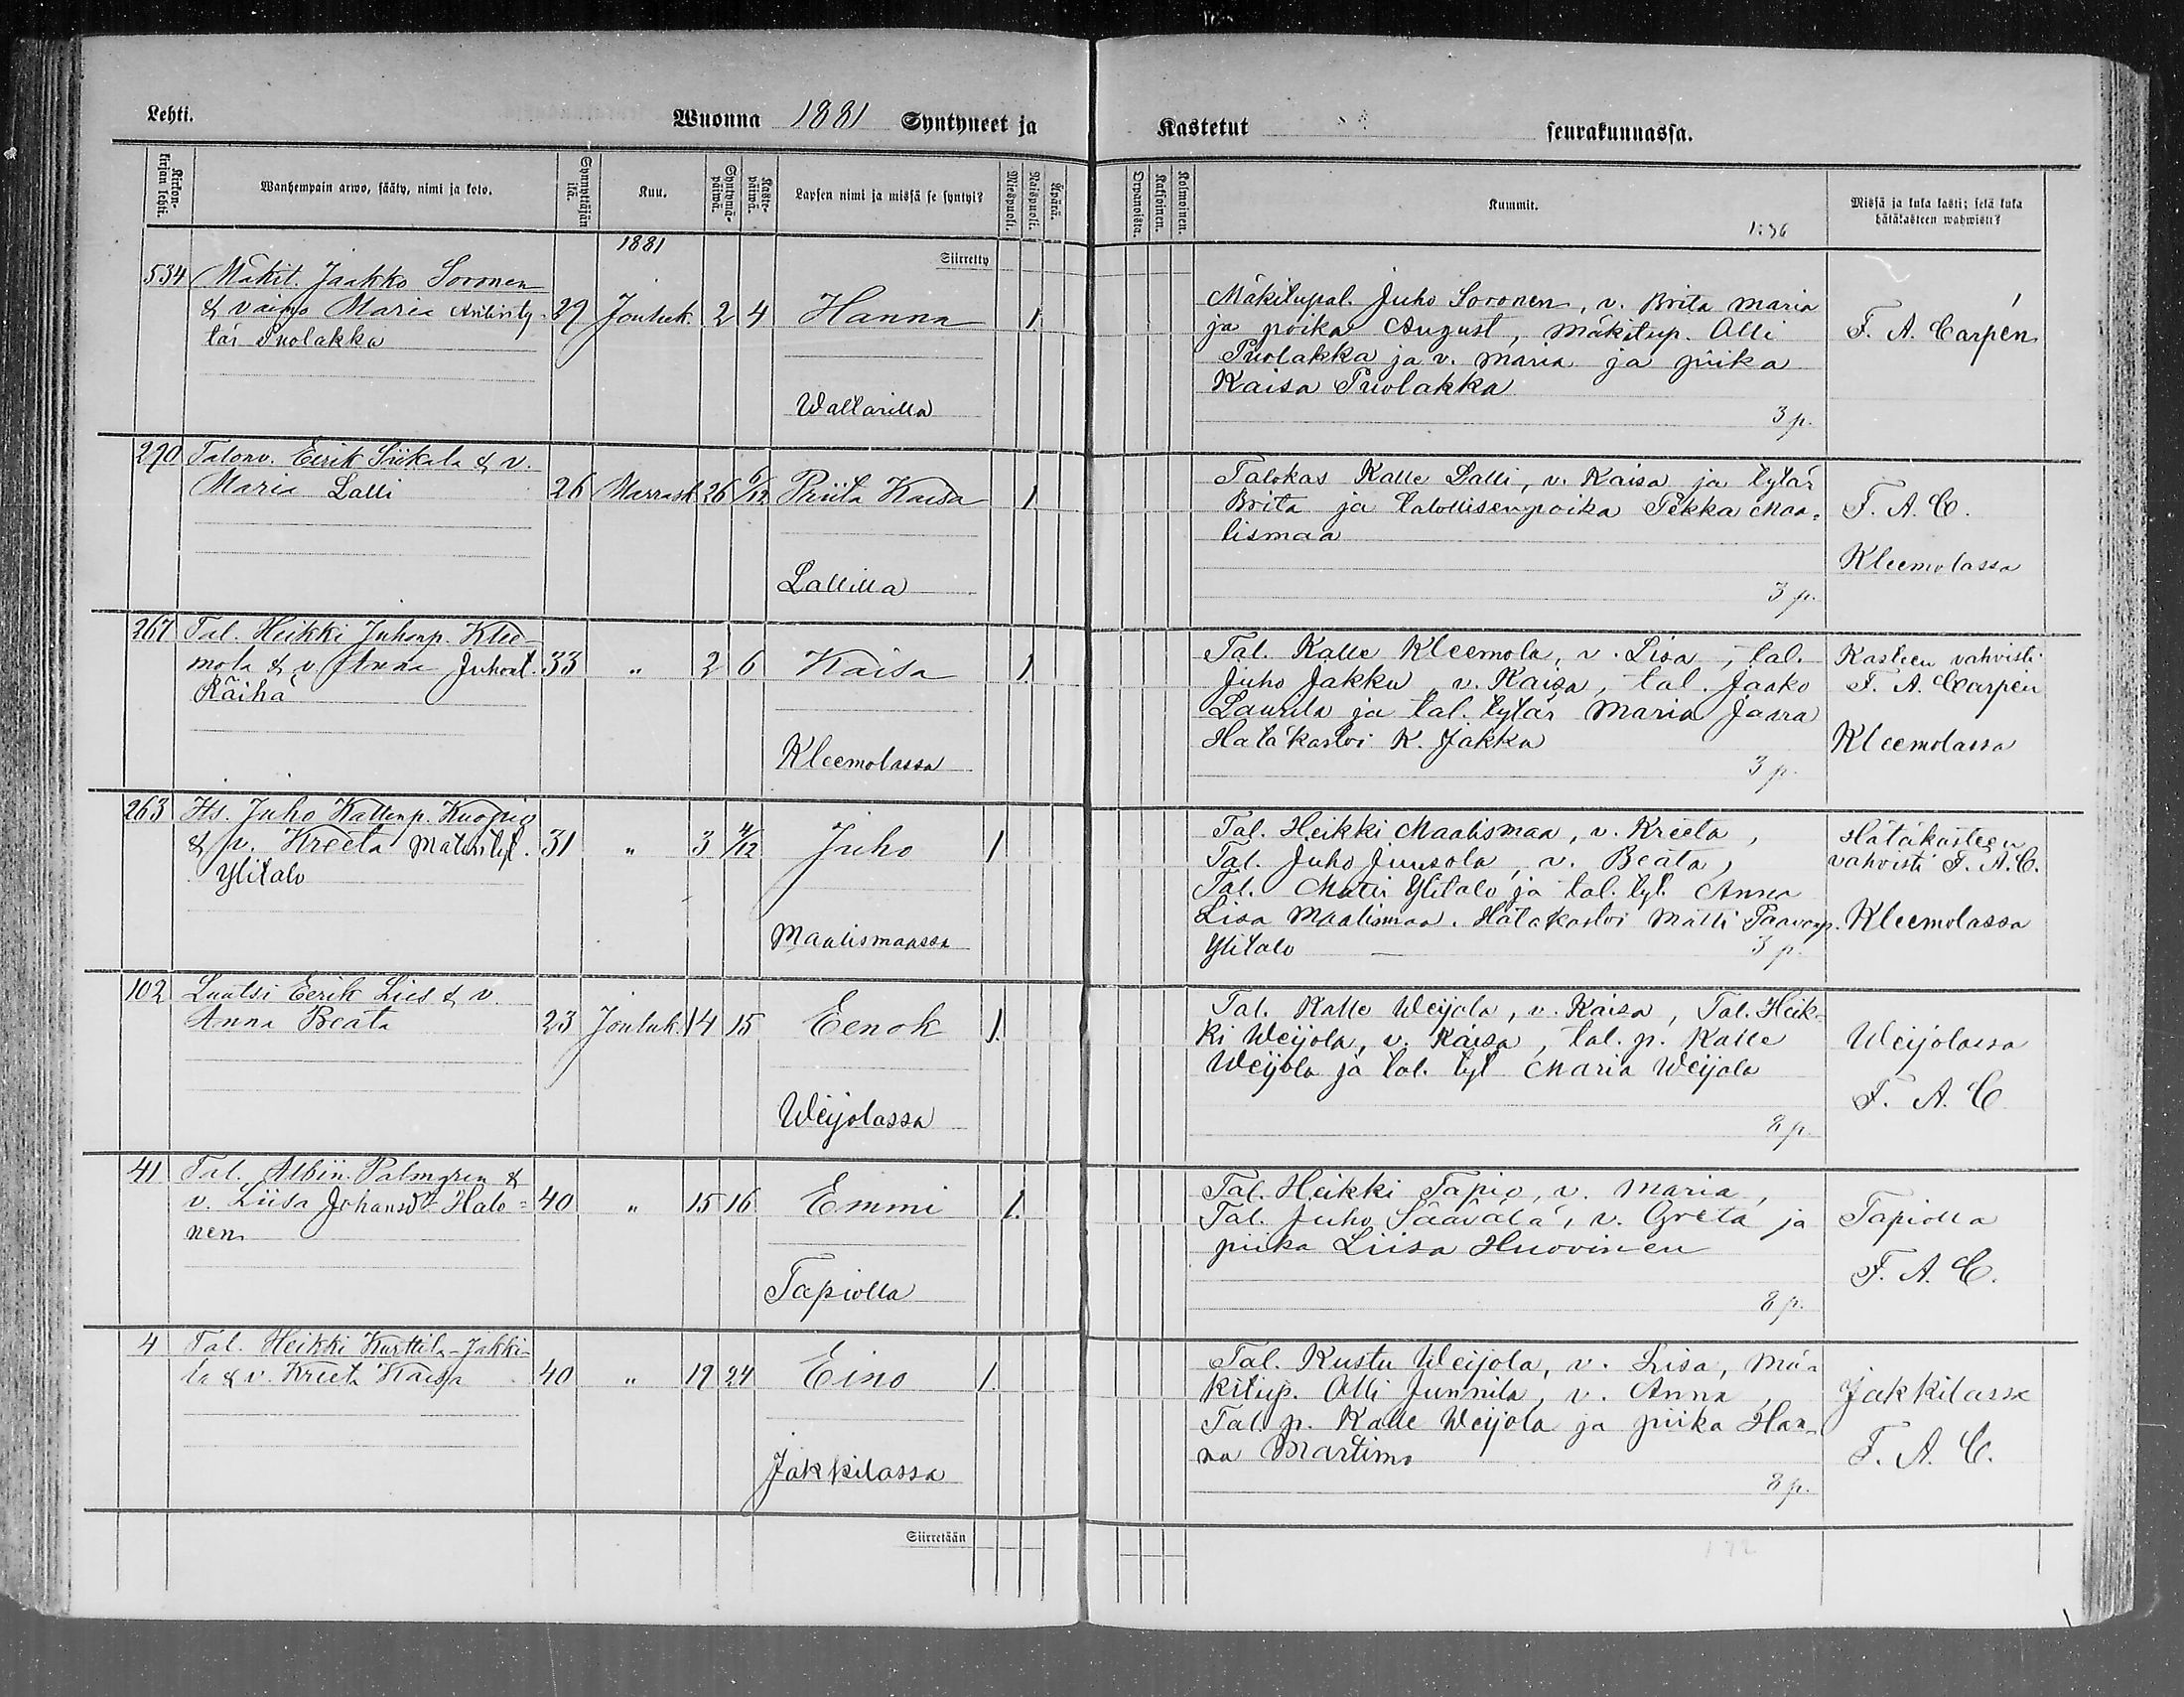 Lehti.
Wuonna 1881 Syntyneet ja
Kirkon-
kirjan lehti.
Wanhempain arwo, sääty, nimi ja koto.
Synnyttäjän
ikä.
Kuu.
Syntymä-
päiwä.
Kaste-
päiwä.
Lapsen nimi ja missä se syntyi?
Miespuoli.
Waispuoli.
Äpärä.
1881
Siirretty
534 Mäkit. Jaakko Soronen
& vaimo Maria
29 Jouluk. 2 4 Hanna 1
tär Puolakka
Waltarilla
290 Talonv. Eerik Siikala & v.
Maria Lalli 26 Marrask 26 6/12 Priita Kaisa 1
Lallilla
267 Tal. Heikki Juhonp. Klee-
mola & v. Anna Juhont. 33 " 2 6 Kaisa 1.
Räihä
Kleemolassa
263 Its. Juho Kallenp. Kuopio
& v. Kreeta Matintyt. 31 " 3 4/12 Juho 1
Ylitalo
Maalismaassa
102 Luutsi Eerik Lies & v.
Anna Beata 23 Jouluk. 14 15 Eenok 1.
Weijolassa
41 Tal. Albin Palmgren &
v. Liisa Johansdr Halo= 40 " 15 16 Emmi 1.
nen
Tapiolla
4 Tal. Heikki Kurttila-Jakki-
la & v. Kreeta Kaisa 40 " 19 24 Eino 1.
Jakkilassa
Siirretään
Kastetut seurakunnassa.
Orpanoista.
Kaksoinen.
Kolmoinen.
Kummit.
Missä ja kuka kasti; sekä kuka
hätäkasteen wahwisti?
1:36
Mäkitupal. Juho Soronen, v. Brita Maria
ja poika August, mäkitup. Olli
Puolakka ja v. Maria ja piika
Kaisa Puolakka
3 p.
F. A. Carpén
Talokas Kalle Lalli, v. Kaisa ja tytär
Brita ja talollisenpoika Pekka Maa=
lismaa
3 p.
F. A. C.
Kleemolassa
Tal. Kalle Kleemola, v. Lisa, tal.
Juho Jakku v. Kaisa, tal. Jaako
Laurila ja tal. tytär Maria Jaara
Hätäkastoi K. Jakku
3 p.
Kasteen vahvisti
F. A. Carpen
Kleemolassa
Tal. Heikki Maalismaa, v. Kreeta,
Tal. Juho Juusola, v. Beata,
Tal. Matti Ylitalo ja tal. tyt. Anna
Lisa Maalismaa. Hätäkastoi Matti Paavonp.
Ylitalo
3 p.
Hätäkasteen
vahvisti F. A. C.
Kleemolassa
Tal. Kalle Weijola, v. Kaisa, Tal. Heik-
ki Weijola, v. Kaisa, tal. p. Kalle
Weijola ja tal. tyt Maria Weijola
8 p.
Weijolassa
F. A. C
Tal. Heikki Tapio, v. Maria,
Tal. Juho Säävälä, v. Greta ja
piika Liisa Huovinen
8 p.
Tapiolla
F. A. C.
Tal. Kustu Weijola, v. Lisa, mä-
kitup. Olli Junnila, v. Anna,
Tal. p. Kalle Weijola ja piika Han-
na Martimo
8 p.
Jakkilassa
F. A. C.